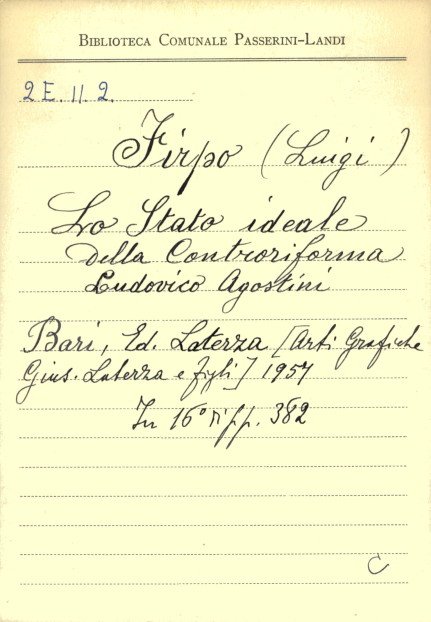 BIBLIOTECA COMUNALE PASSERINI-LANDI
2 E. II. 2.
Firpo (Luigi)
Lo Stato ideale
della Controriforma
Ludovico Agostini
Bari, Ed. Laterza [Arti Grafiche
Gius. Laterza e figli] 1957
In 16° di pp. 382
C